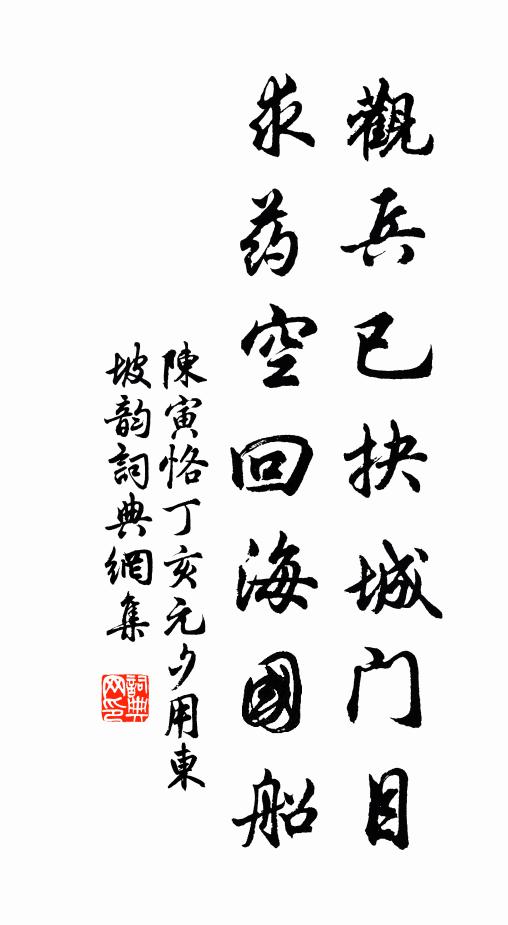 觀兵已抉城門目
求药空回海國船
陳寅恪丁亥元夕用東
坡韵詞典網集
詞典網印